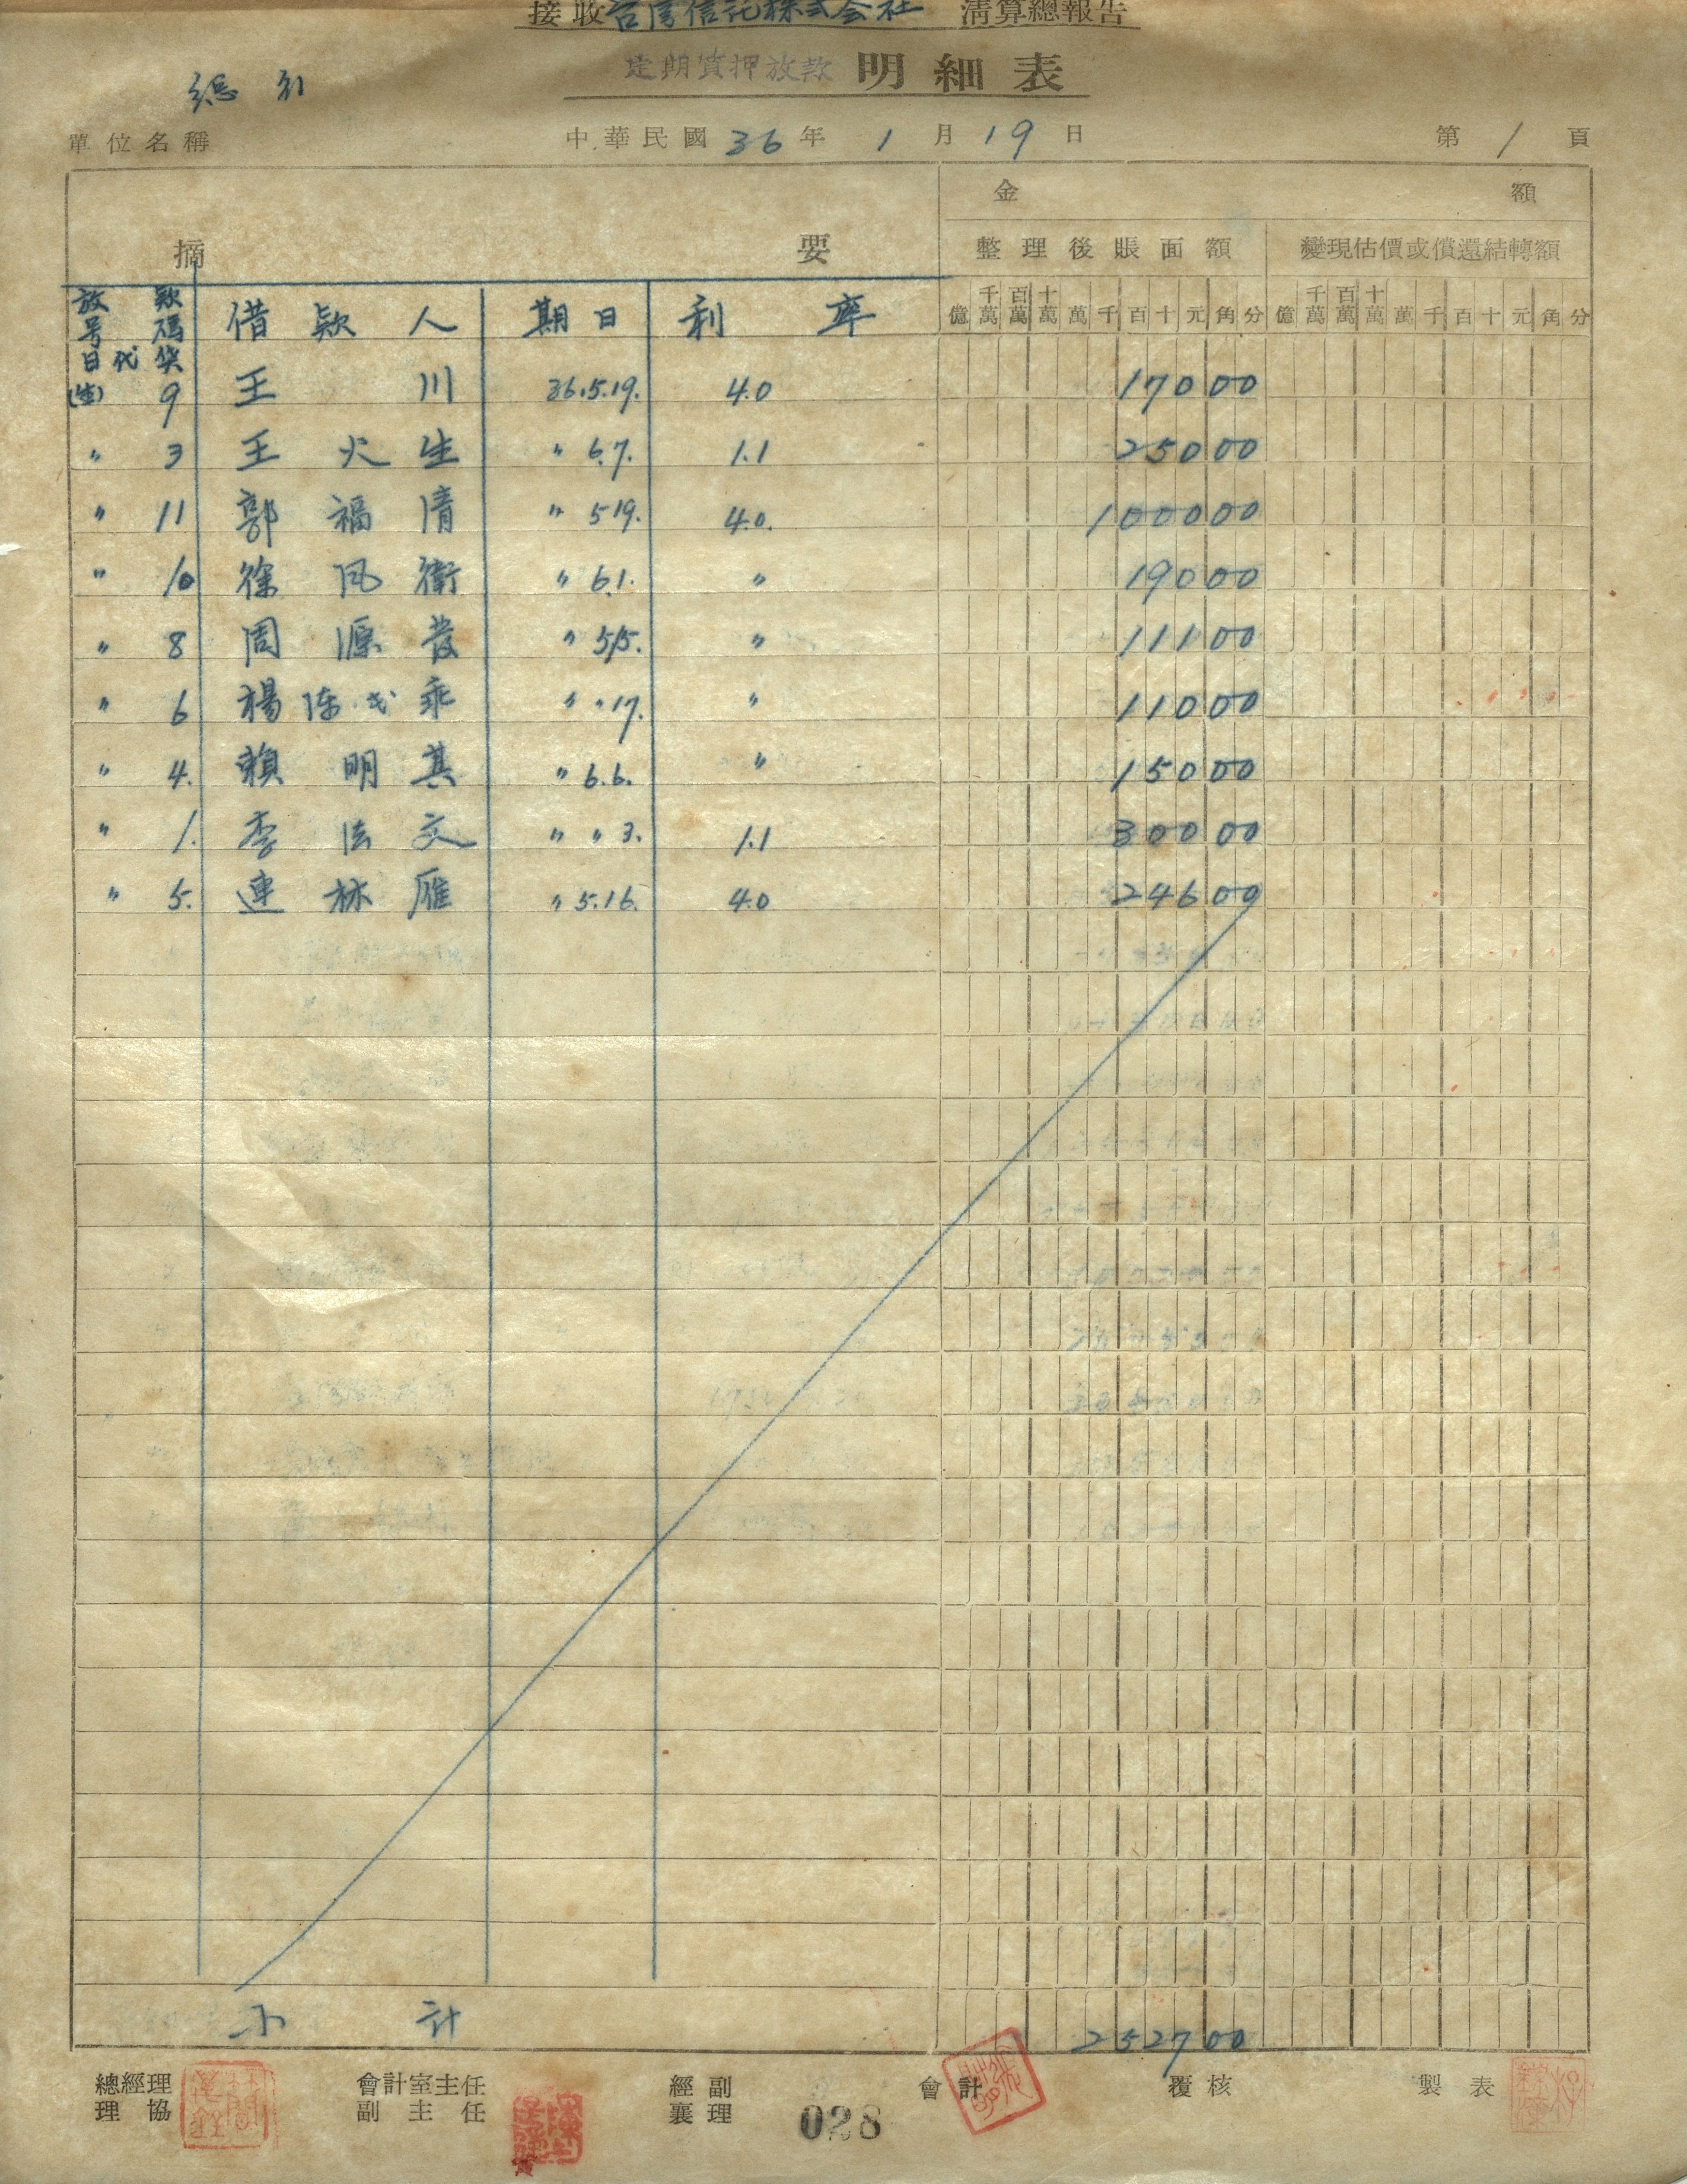 接收台湾信託株式会社 清算總報告
定期質押放款 明細表
總行
單位名稱 中華民國 36 年 1 月 19 日 第 1 頁
金 額
摘 要 整理後賬面額 變現估價或償還結轉額
放款号碼 借款人 期日 利率 億 千萬 百萬 十萬 萬 千 百 十 元 角 分 億 千萬 百萬 十萬 萬 千 百 十 元 角 分
日代
(生) 9 王 川 36.5.19. 4.0 17000
〃 3 王火生 〃 6.7. 1.1 25000
〃 11 郭福清 〃 5.19. 4.0. 100000
〃 10 徐风衛 〃 6.1. 〃 19000
〃 8 周源發 〃 5.15. 〃 11100
〃 6 楊陈氏乖 〃 〃 17. 〃 11000
〃 4. 賴明其 〃 6.6. 〃 15000
〃 1. 李法文 〃 〃 3. 1.1 30000
〃 5. 連林雁 〃 5.16. 4.0 24600
小計 252700
總經理 會計室主任 經副 會計 覆核 製表
理協 副主任 襄理
028